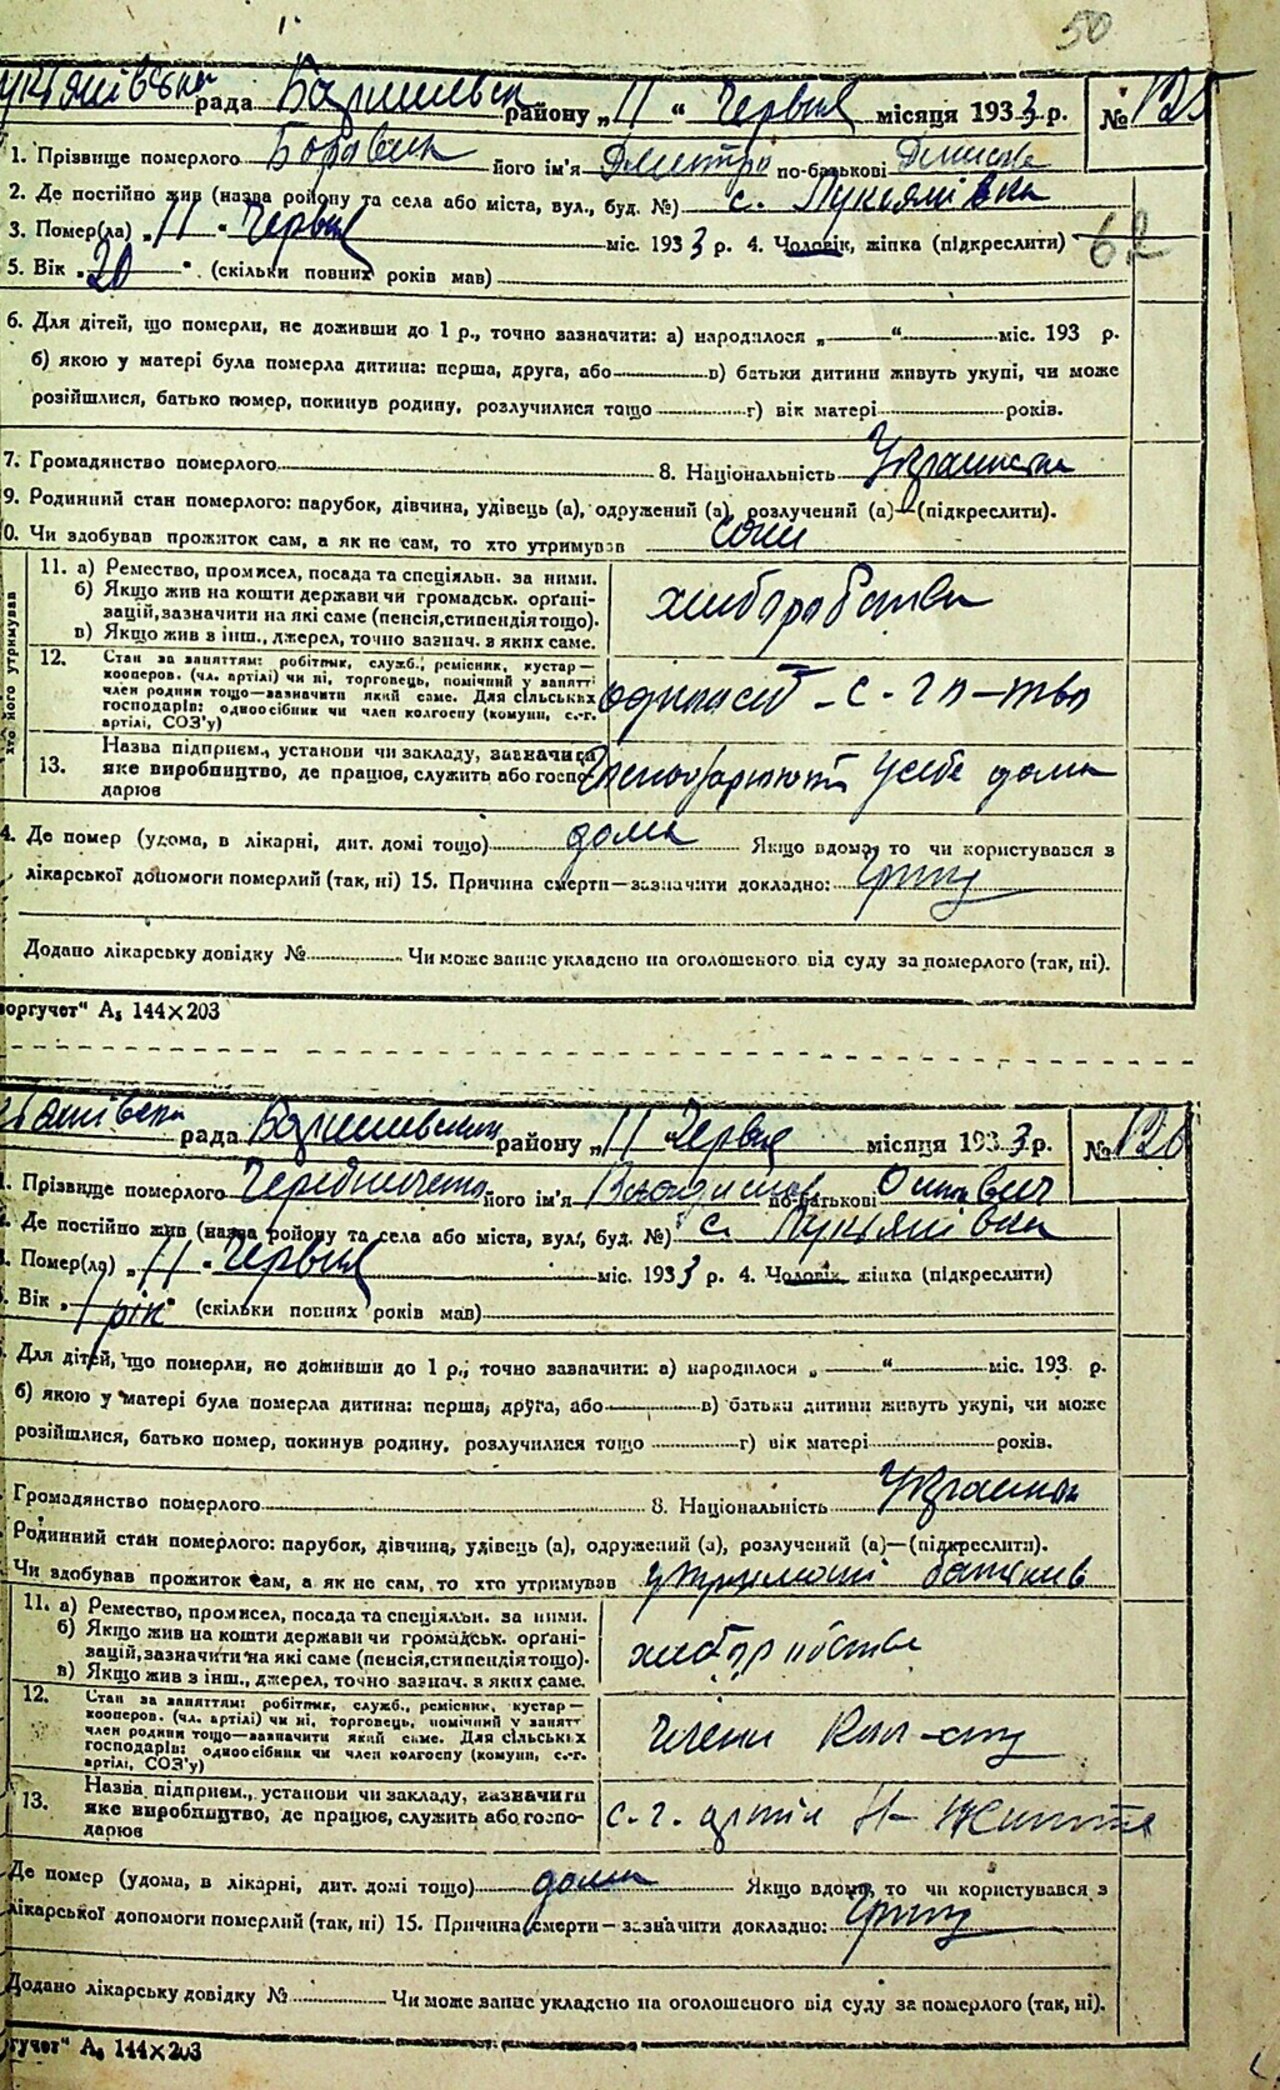 50
рада район у „11“ Червня місяця 1933 р. № 125
1. Прізвище померлого Боровик його ім'я Дмитро по-батькові
2. Де постійно жив (назва району та села або міста, вул., буд. №) с. Лукьянівка
3. Помер(ла) „11“ Червня міс. 1933 р. 4. Чоловік, жінка (підкреслити) 62
5. Вік „20“ (скільки повних років мав)
6. Для дітей, що померли, не доживши до 1 р., точно зазначити: а) народилося „ “ міс. 193 р.
б) якою у матері була померла дитина: перша, друга, або в) батьки дитини живуть укупі, чи може
розійшлися, батько помер, покинув родину, розлучилися тощо г) вік матері років.
7. Громадянство померлого 8. Національність
9. Родинний стан померлого: парубок, дівчина, удівець (а), одружений (а), розлучений (а)—(підкреслити).
0. Чи здобував прожиток сам, а як не сам, то хто утримував
11. а) Ремество, промисел, посада та спеціяльн. за ними.
б) Якщо жив на кошти держави чи громадськ. орґані-
зацій, зазначити на які саме (пенсія, стипендія тощо).
в) Якщо жив з інш., джерел, точно зазнач. з яких саме.
хліборобство
12. Стан за заняттям: робітник, служб., ремісник, кустар—
кооперов. (чл. артілі) чи ні, торговець, помічний у занятті
член родини тощо—зазначити який саме. Для сільських
господарів: одноосібник чи член колгоспу (комуни, с.-г.
артілі, СОЗ'у)
13. Назва підприєм., установи чи закладу, зазначити
яке виробництво, де працює, служить або госпо-
дарює
у себе дома
4. Де помер (удома, в лікарні, дит. домі тощо) дома Якщо вдома, то чи користувався з
лікарської допомоги померлий (так, ні) 15. Причина смерти—зазначити докладно:
Додано лікарську довідку № Чи може запис укладено на оголошеного від суду за померлого (так, ні).
воргучет“ А₅ 144×203
хто його утримував
рада району „11“ Червня місяця 1933 р. № 126
1. Прізвище померлого Чередниченко його ім'я по-батькові
Де постійно жив (назва району та села або міста, вул., буд. №) с. Лукьянівка
Помер(ла) „11“ Червня міс. 1933 р. 4. Чоловік жінка (підкреслити)
Вік „1 рік“ (скільки повних років мав)
Для дітей, що померли, не доживши до 1 р., точно зазначити: а) народилося „ “ міс. 193 р.
б) якою у матері була померла дитина: перша, друга, або в) батьки дитини живуть укупі, чи може
розійшлися, батько помер, покинув родину, розлучилися тощо г) вік матері років.
Громадянство померлого 8. Національність
Родинний стан померлого: парубок, дівчина, удівець (а), одружений (а), розлучений (а)—(підкреслити).
Чи здобував прожиток сам, а як не сам, то хто утримував
11. а) Ремество, промисел, посада та спеціяльн. за ними.
б) Якщо жив на кошти держави чи громадськ. орґані-
зацій, зазначити на які саме (пенсія, стипендія тощо).
в) Якщо жив з інш., джерел, точно зазнач. з яких саме.
хліборобство
12. Стан за заняттям: робітник, служб., ремісник, кустар—
кооперов. (чл. артілі) чи ні, торговець, помічний у занятт
член родини тощо—зазначити який саме. Для сільських
господарів: одноосібник чи член колгоспу (комуни, с.-г.
артілі, СОЗ'у)
13. Назва підприєм., установи чи закладу, зазначити
яке виробництво, де працює, служить або госпо-
дарює
с. г. артіл Н-Життя
Де помер (удома, в лікарні, дит. домі тощо) дома Якщо вдома, то чи користувався з
лікарської допомоги померлий (так, ні) 15. Причина смерти—зазначити докладно:
Додано лікарську довідку № Чи може запис укладено на оголошеного від суду за померлого (так, ні).
ргучет“ А₅ 144×203